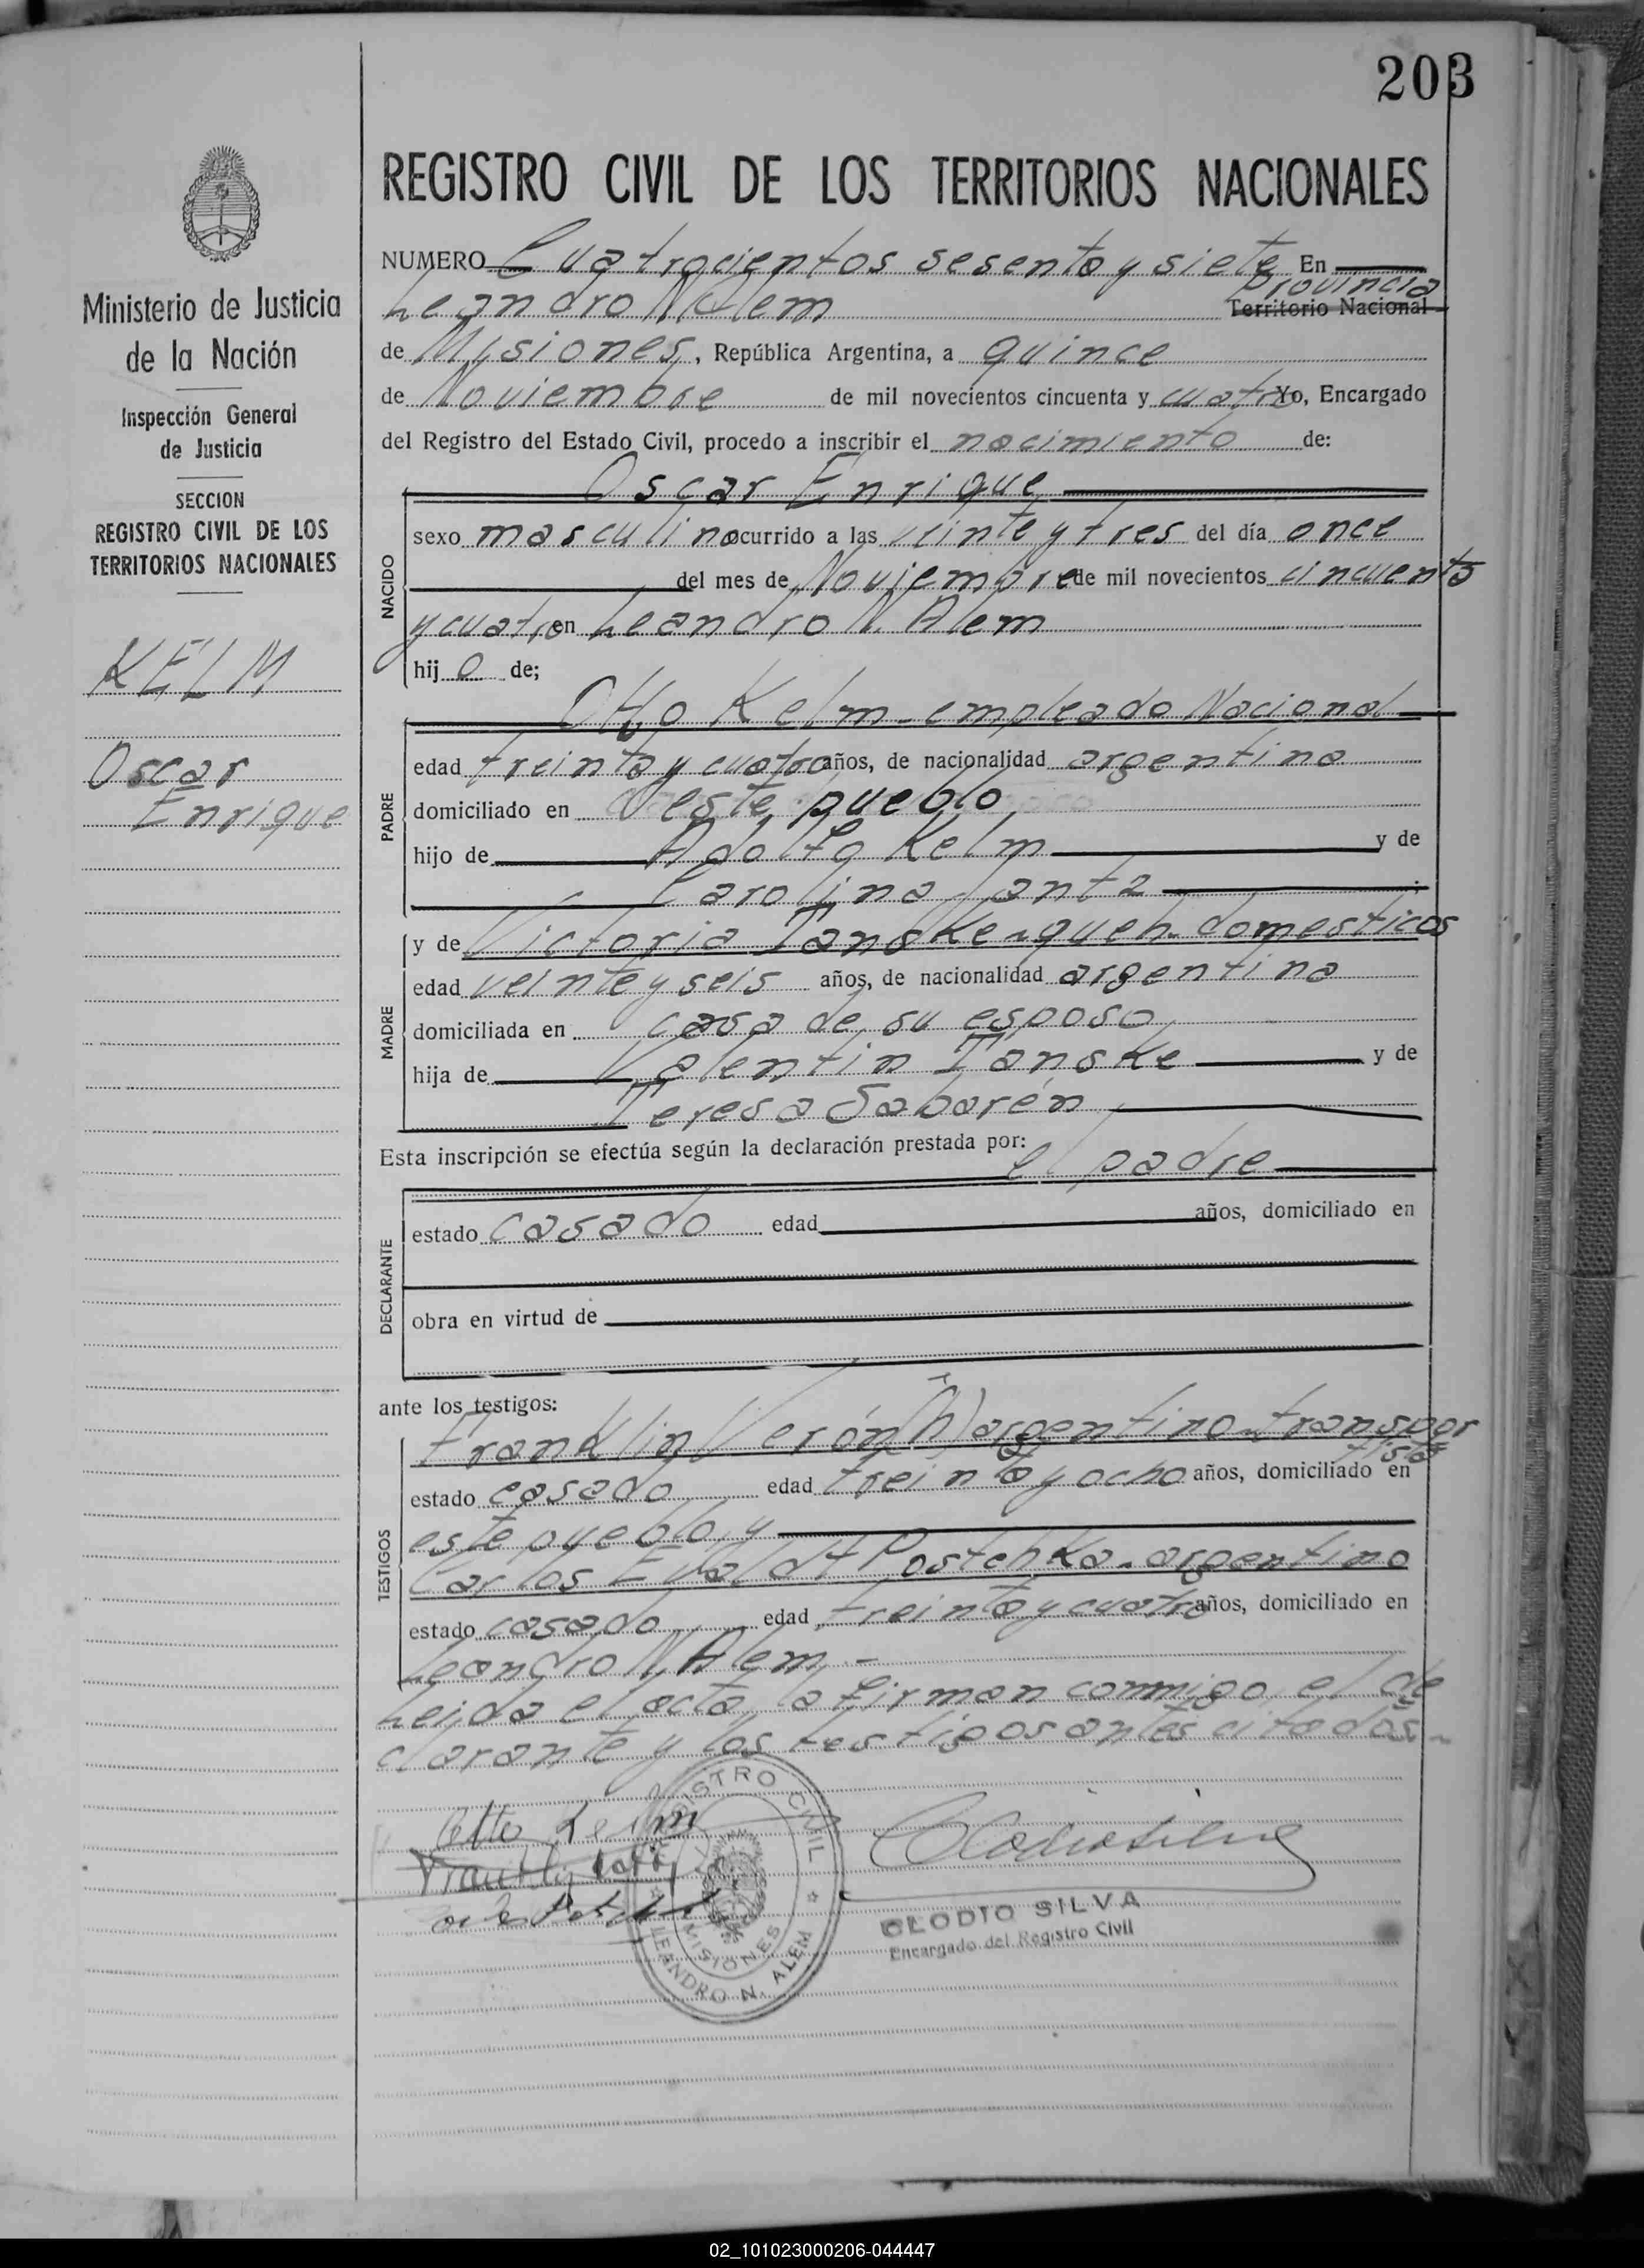 203
REGISTRO CIVIL DE LOS TERRITORIOS NACIONALES
Ministerio de Justicia
de la Nación
Inspección General
de Justicia
SECCION
REGISTRO CIVIL DE LOS
TERRITORIOS NACIONALES
KELM
Oscar
Enrique
NUMERO Cuatrocientos sesenta y siete En
Leandro N Alem Provincia Territorio Nacional
de Misiones, República Argentina, a quince
de Noviembre de mil novecientos cincuenta y cuatro Yo, Encargado
del Registro del Estado Civil, procedo a inscribir el nacimiento de:
Oscar Enrique
NACIDO
sexo masculino ocurrido a las veinte y tres del día once
del mes de Noviembre de mil novecientos cincuenta
y cuatro en Leandro N. Alem
hij o de;
Otto Kelm - empleado Nacional
PADRE
edad treinta y cuatro años, de nacionalidad argentina
domiciliado en este pueblo
hijo de Adolfo Kelm y de
Carolina Jantz;
MADRE
y de Victoria Tanske - queh. domesticos
edad veinte y seis años, de nacionalidad argentina
domiciliada en casa de su esposo
hija de Valentin Tanske y de
Teresa Sabarén
Esta inscripción se efectúa según la declaración prestada por: el padre
DECLARANTE
estado casado edad años, domiciliado en
obra en virtud de
ante los testigos:
TESTIGOS
Franklin Verón (h) argentino - transpor
tista
estado casado edad treinta y ocho años, domiciliado en
este pueblo, y
Carlos Evaldt Postchka - argentino
estado casado edad treinta y cuatro años, domiciliado en
Leandro N. Alem. -
Leida el acta, la firman conmigo, el de
clarante y los testigos antes citados. -
Otto Kelm
REGISTRO CIVIL
MISIONES
LEANDRO N. ALEM
CLODIO SILVA
Encargado del Registro Civil
02_101023000206-044447